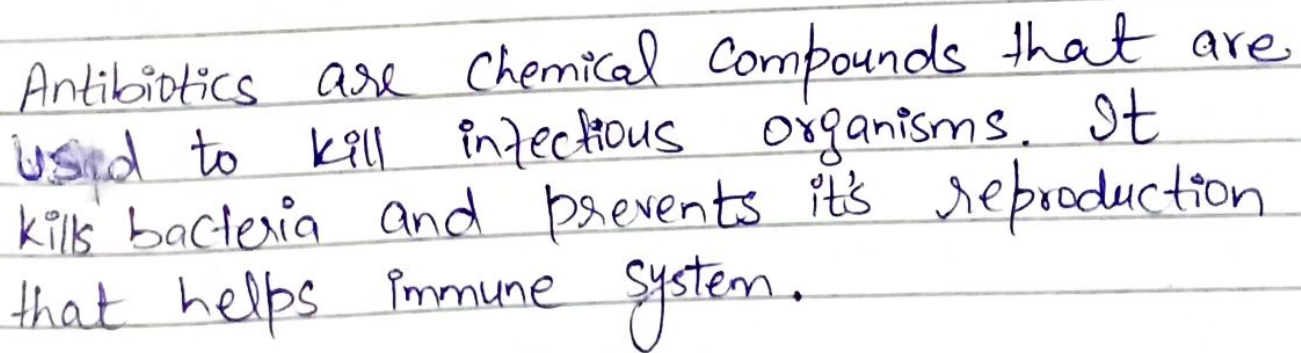 Antibiotics are Chemical Compounds that are
used to kill infectious organisms. It
kills bacteria and prevents it's reproduction
that helps immune system.